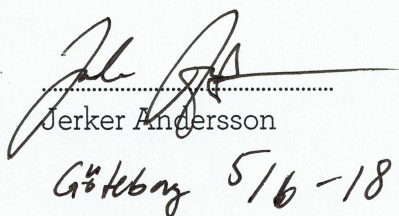 Jerker Andersson
Göteborg 5/6-18